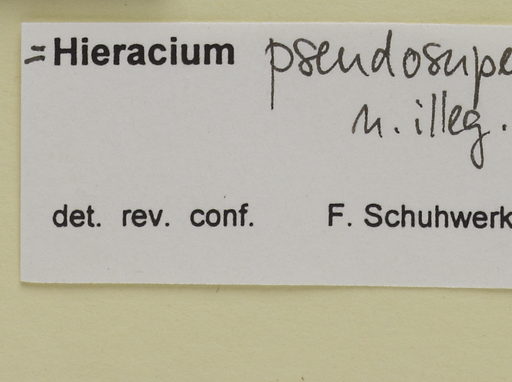 = Hieracium pseudosupe
n. illeg.
det. rev. conf. F. Schuhwerk